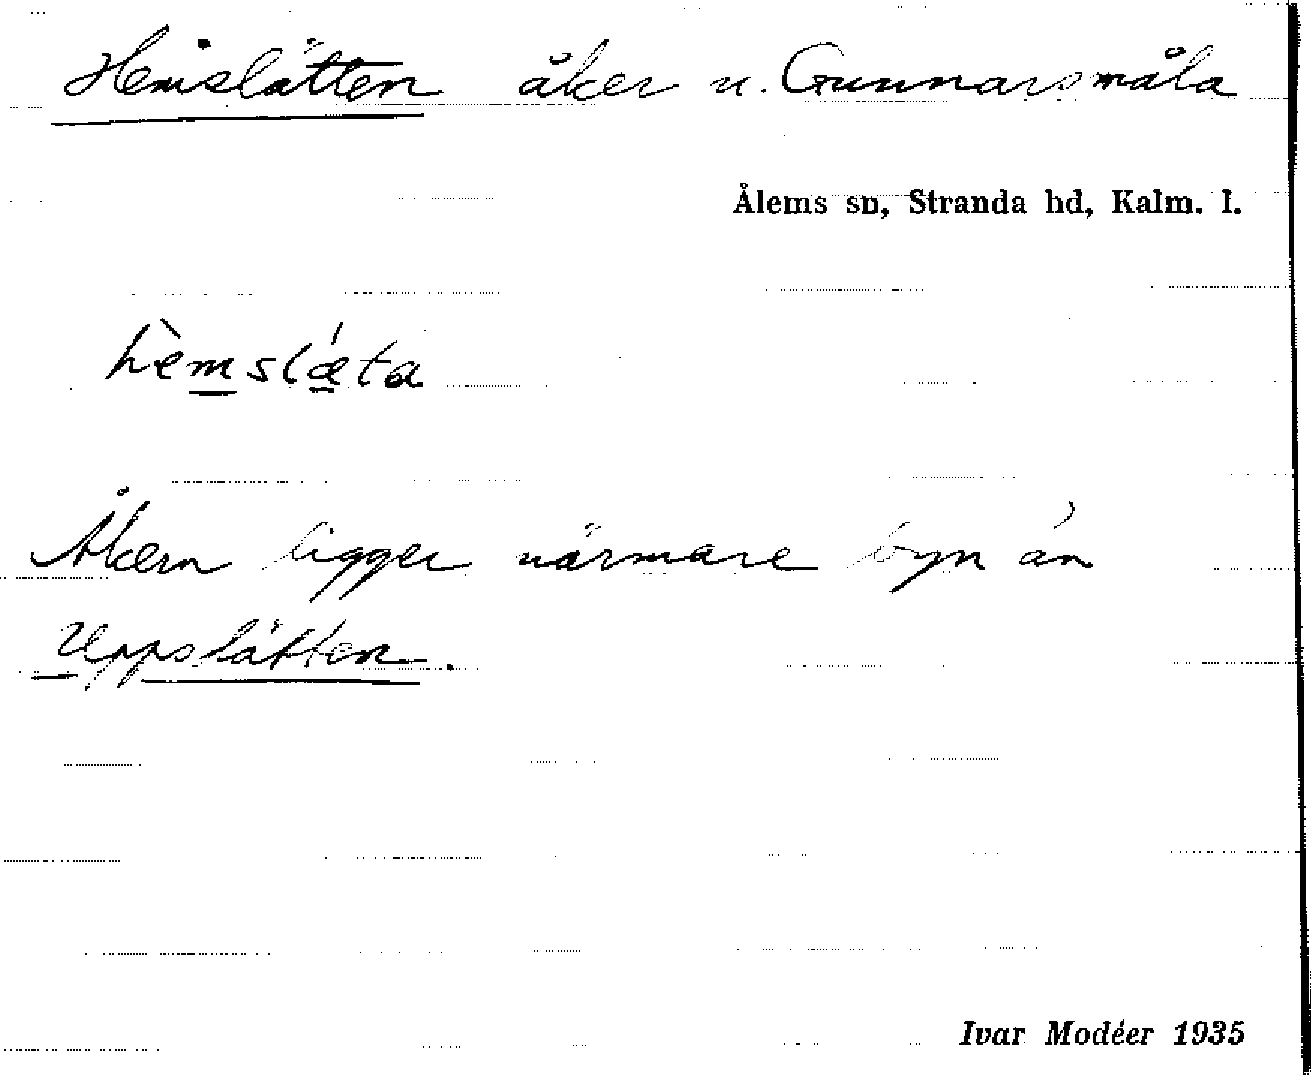 Hemslätten åker u. Gunnarsmåla
Ålems sn, Stranda hd, Kalm. l.
hèmslǽta
Åkern ligger närmare byn än
Uppslätten.
Ivar Modéer 1935